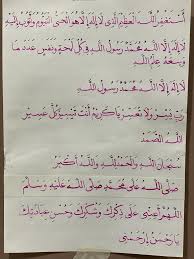 أستغفر الله العظيم الذي لا إله إلا هو الحي القيوم وأتوب إليه
لا إله إلا الله محمد رسول الله في كل لمحة ونفس عدد ما
وسعه علم الله
لا إله إلا الله محمد رسول الله
رب يسر ولا تعسر يا كريم أنت تيسير كل عسير
الله الصمد
سبحان الله والحمد لله والله أكبر
صلى الله على محمد صلى الله عليه وسلم
اللهم أعني على ذكرك وشكرك وحسن عبادتك
يا رحمن ارحمني